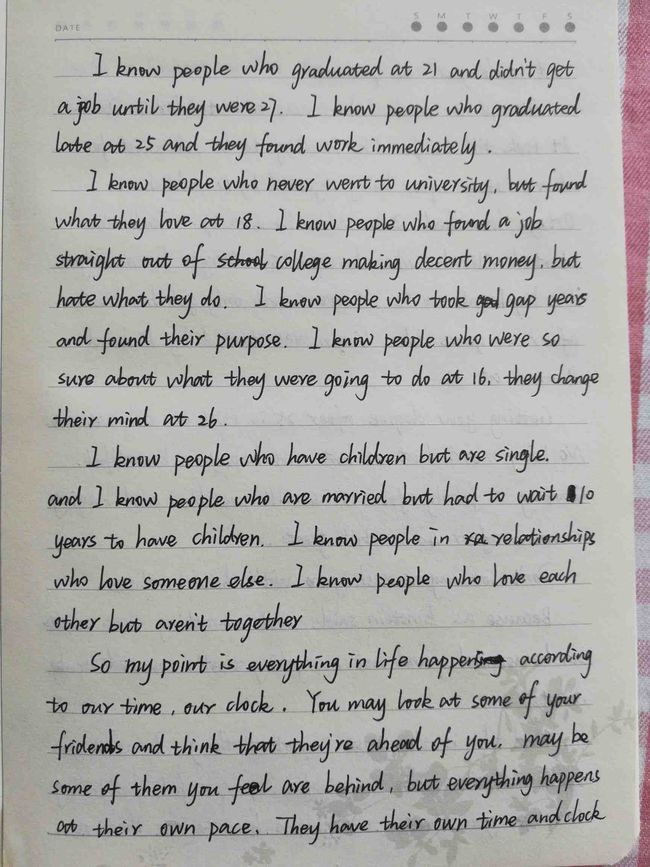 DATE
S M T W T F S
I know people who graduated at 21 and didn't get
a job until they were 27. I know people who graduated
late at 25 and they found work immediately.
I know people who never went to university, but found
what they love at 18. I know people who found a job
straight out of school college making decent money, but
hate what they do. I know people who took god gap years
and found their purpose. I know people who were so
sure about what they were going to do at 16, they change
their mind at 26.
I know people who have children but are single.
and I know people who are married but had to wait 10
years to have children. I know people in ra relationships
who love someone else. I know people who love each
other but aren't together
So my point is everything in life happening according
to our time, our clock. You may look at some of your
fridends and think that they're ahead of you. may be
some of them you feel are behind, but everything happens
at their own pace. They have their own time and clock